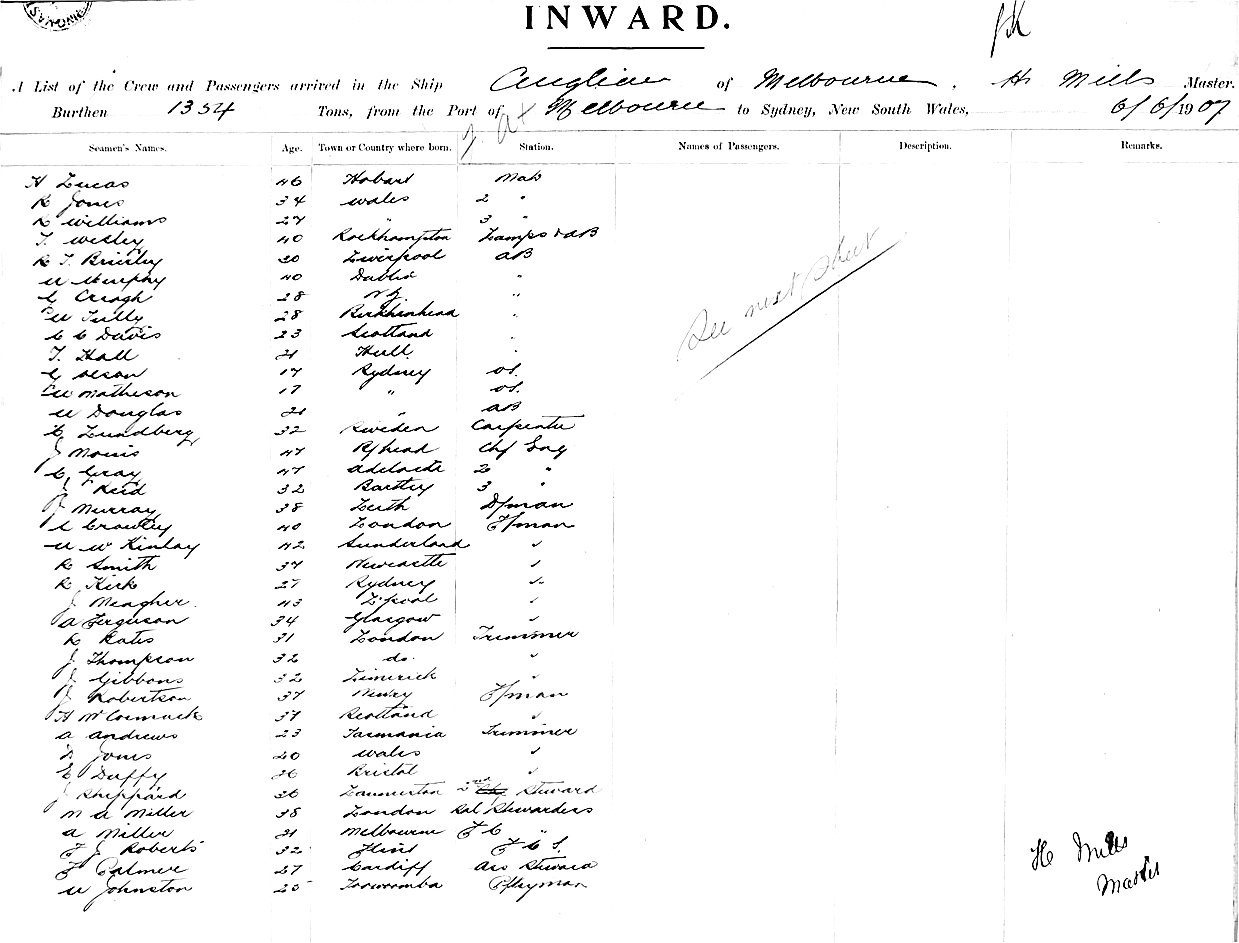 INWARD.
A List of the Crew and Passengers arrived in the Ship Anglian of Melbourne, H Mills Master.
Burthen 1354 Tons, from the Port of Melbourne to Sydney, New South Wales, 6/6/1907
Seamen's Names. Age. Town or Country where born. Station. Names of Passengers. Description. Remarks.
H Lucas 46 Hobart Mate
R Jones 34 Wales 2 "
R Williams 27 " 3 "
T. Wesley 40 Rockhampton Lamps & AB
R T. Brierley 20 Liverpool AB
W Murphy 40 Dublin "
C Creagh 28 NZ. "
W Tully 28 Birkhenhead "
C C Davis 23 Scotland "
T. Hall 21 Hull. "
G Olson 17 Sydney OS.
W Matheson 17 " OS.
W Douglas 21 " AB
C Lundberg 32 Sweden Carpenter
J Norris 47 B/head Chf Eng
C Gray 47 Adelaide 2 "
J Reid 32 3 "
J Murray 38 Leith D/man
C Crowley 40 London F/man
W Kinlay 42 Sunderland "
R Smith 37 Newcastle "
R Kirk 27 Sydney "
J Meagher. 43 L'pool "
A Ferguson 34 Glasgow "
R 31 London Trimmer
J Thompson 32 do. "
J Gibbons 32 Limerick "
J Robertson 37 Newry F/man
H McCormack 37 Scotland "
A Andrews 23 Tasmania Trimmer
D Jones 20 Wales "
E Duffy 26 Bristol "
J Sheppard 36 2nd Steward
M A Miller 38 London Sal Stewardess
A Miller 31 Melbourne F C "
F J Roberts 32 Flint F C S.
F Palmer 27 Cardiff Ass Steward
W Johnston 25 Toowoomba P/tryman
See next sheet
H Mills
Master